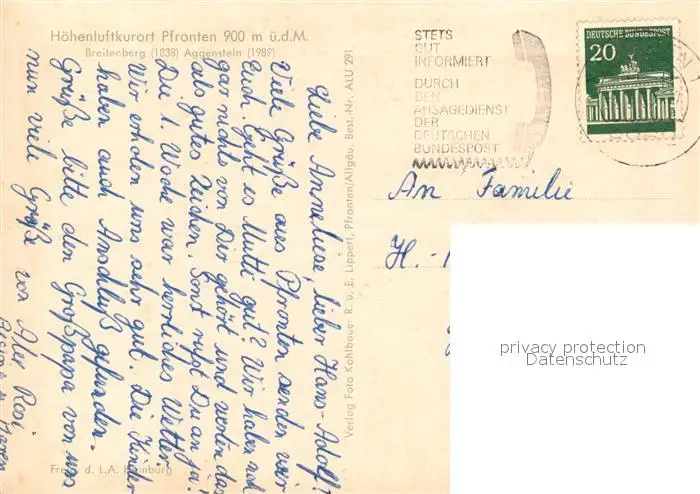 Höhenluftkurort Pfronten 900 m ü.d.M.
Breitenberg (1838) Aggenstein (1989)
Liebe Anneliese, lieber Hans-Adolf!
Viele Grüße aus Pfronten senden wir
Euch. Geht es Mutti gut? Wir haben noch
gar nichts von Dir gehört und werten das
als gutes Zeichen. Sonst rufst Du an ja!
Die 1. Woche war herrliches Wetter.
Wir erholen uns sehr gut. Die Kinder
haben auch Anschluß gefunden.
Grüße bitte den Großpapa von uns
nun viele Grüße von Rosi
Verlag Foto Kohlbauer R. u. E. Lipperl, Pfronten/Allgäu. Best.-Nr. ALU 291
d. L.A. Hamburg
STETS
GUT
INFORMIERT
DURCH
DEN
ANSAGEDIENST
DER
DEUTSCHEN
BUNDESPOST
DEUTSCHE BUNDESPOST
20
An Familie
H.-
privacy protection
Datenschutz